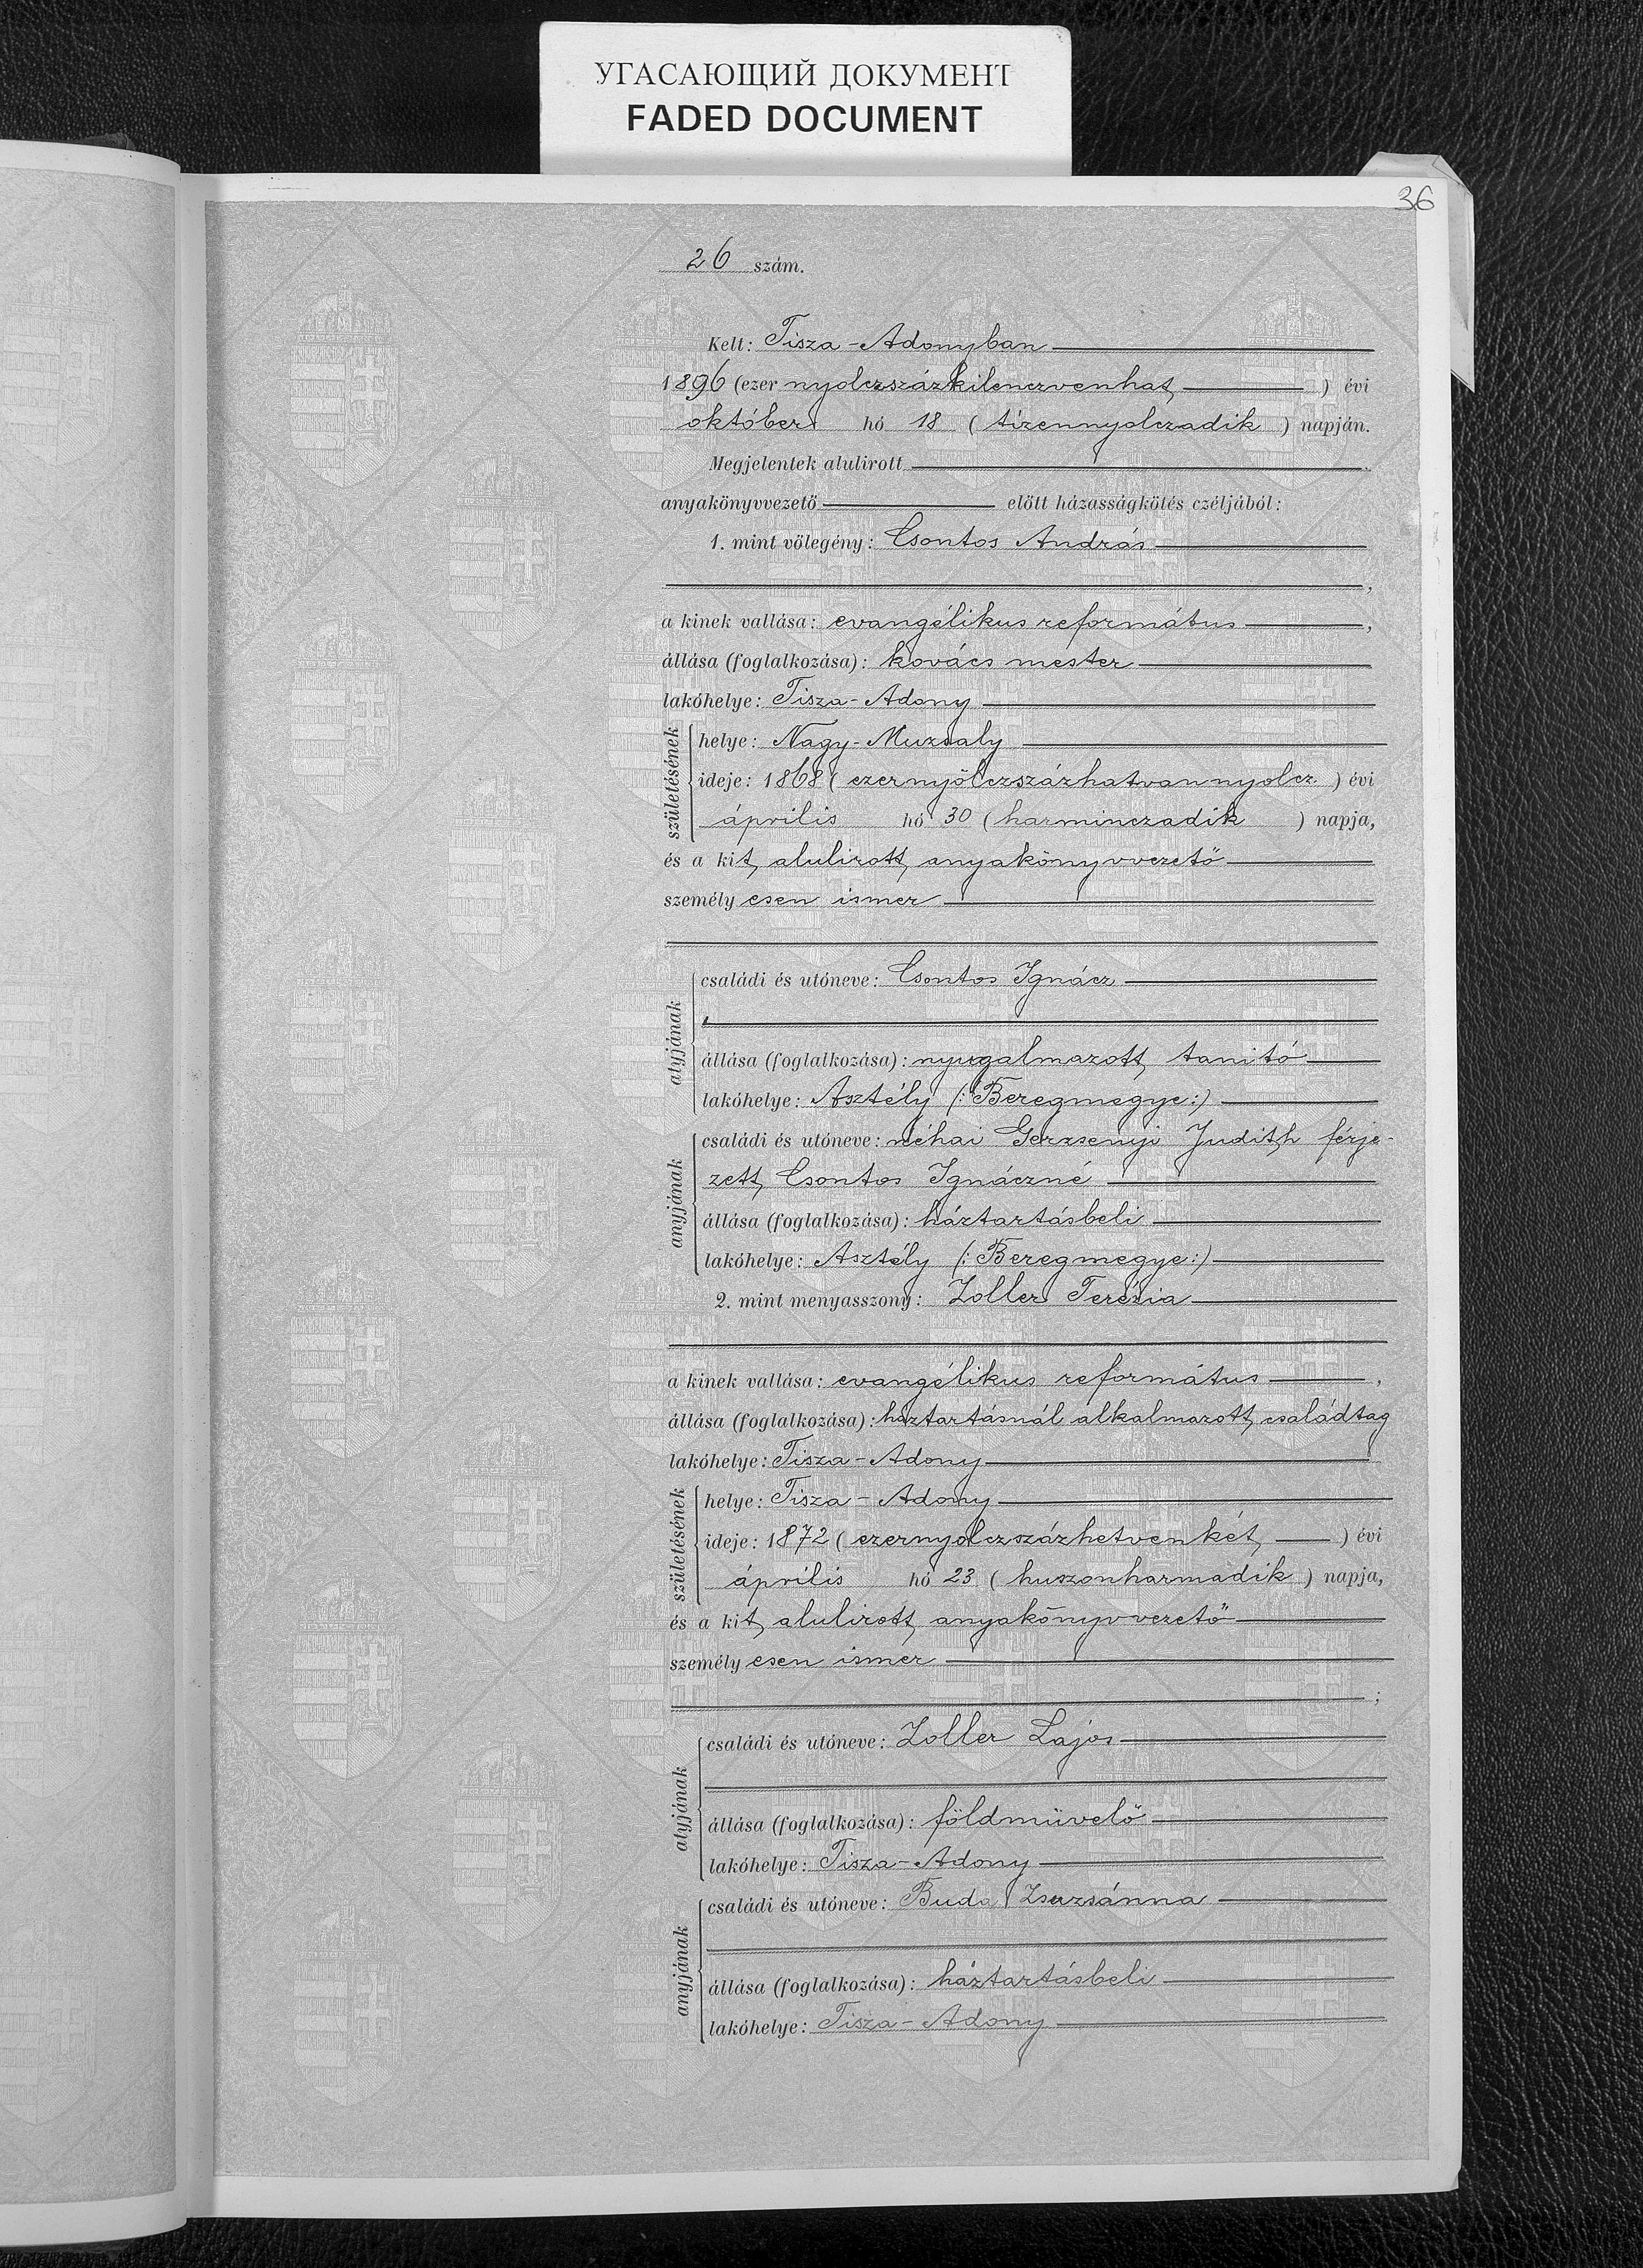 УГАСАЮЩИЙ ДОКУМЕНТ
FADED DOCUMENT
36
26 szám.
Kelt: Tisza-Adonyban
1896 (ezer nyolczszázkilenczvenhat) évi
október hó 18 (tizennyolczadik) napján.
Megjelentek alulirott
anyakönyvvezető előtt házasságkötés czéljából:
1. mint völegény: Csontos András
a kinek vallása: evangélikus református,
állása (foglalkozása): kovács mester
lakóhelye: Tisza-Adony
születésének
helye: Nagy-Muzsaly
ideje: 1868 (ezernyólczszázhatvannyolcz.) évi
április hó 30 (harminczadik) napja,
és a kit alulirott anyakönyvvezető
személyesen ismer
atyjának
családi és utóneve: Csontos Ignácz
állása (foglalkozása): nyugalmazott tanitó
lakóhelye: Asztély (:Beregmegye:)
anyjának
családi és utóneve: néhai Gerzsenyi Judith férje-
zett Csontos Ignáczné
állása (foglalkozása): háztartásbeli
lakóhelye: Asztély (:Beregmegye:)
2. mint menyasszony: Zoller Terézia
a kinek vallása: evangélikus református,
állása (foglalkozása): háztartásnál alkalmazott családtag
lakóhelye: Tisza-Adony
születésének
helye: Tisza-Adony
ideje: 1872 (ezernyolczszázhetvenkét) évi
április hó 23 (huszonharmadik) napja,
és a kit alulirott anyakönyvvezető
személyesen ismer
;
atyjának
családi és utóneve: Zoller Lajos
állása (foglalkozása): földmüvelő
lakóhelye: Tisza-Adony
anyjának
családi és utóneve: Buda Zsuzsánna
állása (foglalkozása): háztartásbeli
lakóhelye: Tisza-Adony